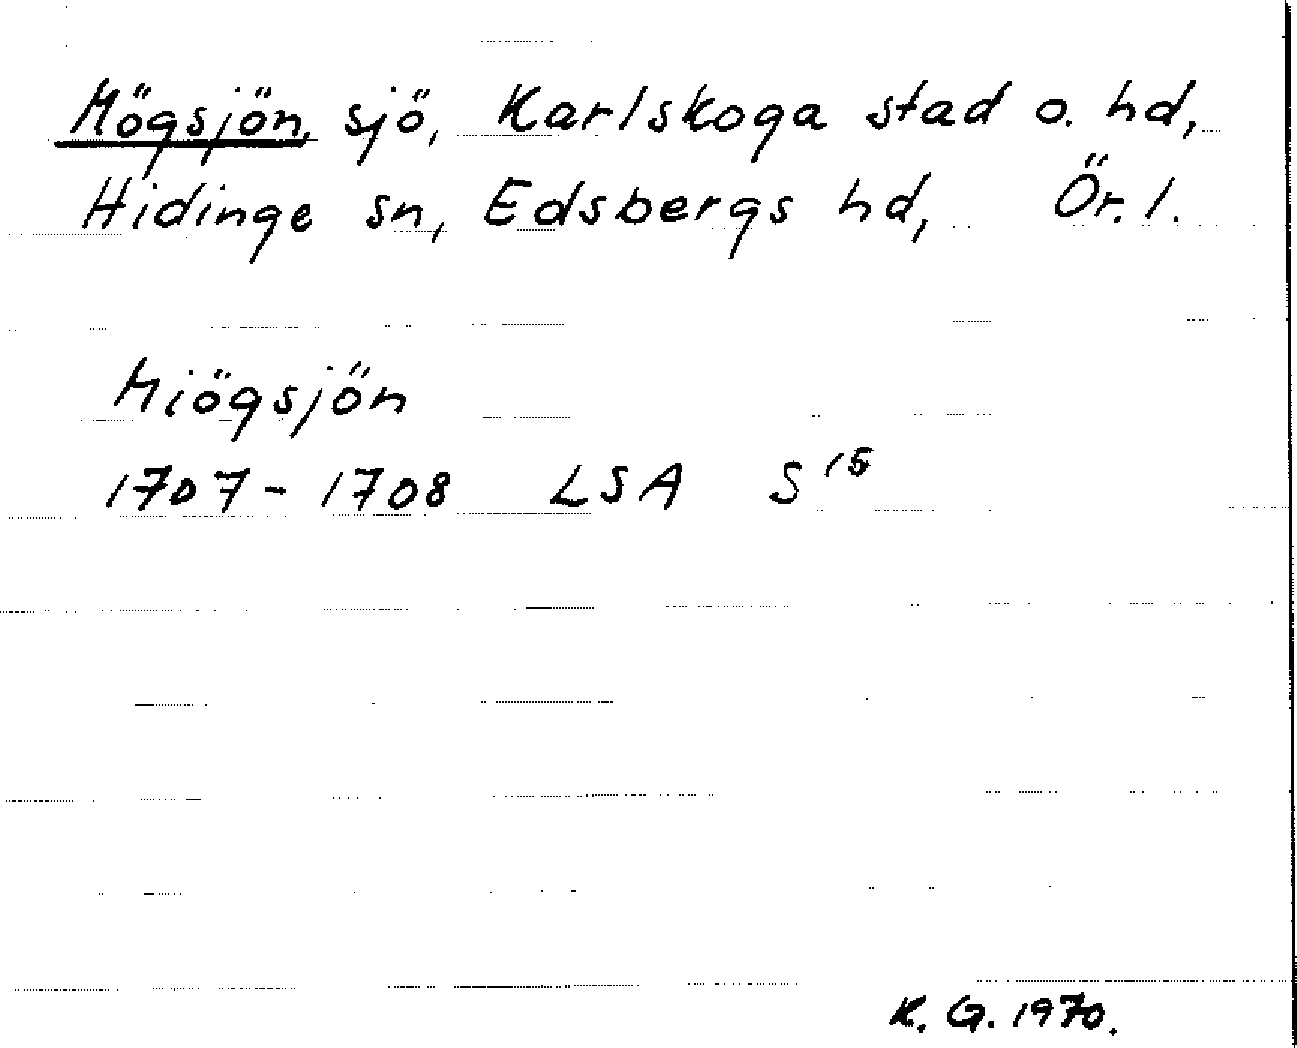 Mögsjön, sjö, Karlskoga stad o. hd,
Hidinge sn, Edsbergs hd, Ör. l.
Miögsjön
1707-1708 LSA S 15
K. G. 1970.